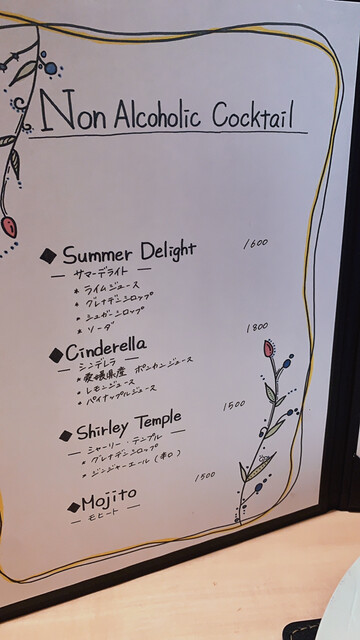 Non Alcoholic Cocktail
◆ Summer Delight 1600
— サマーデライト —
* ライムジュース
* グレナデンシロップ
* シュガーシロップ
* ソーダ
◆ Cinderella 1800
— シンデレラ —
* 愛媛県産 ポンカンジュース
* レモンジュース
* パイナップルジュース
◆ Shirley Temple 1500
— シャーリー・テンプル —
* グレナデンシロップ
* ジンジャーエール (辛口)
◆ Mojito 1500
— モヒート —